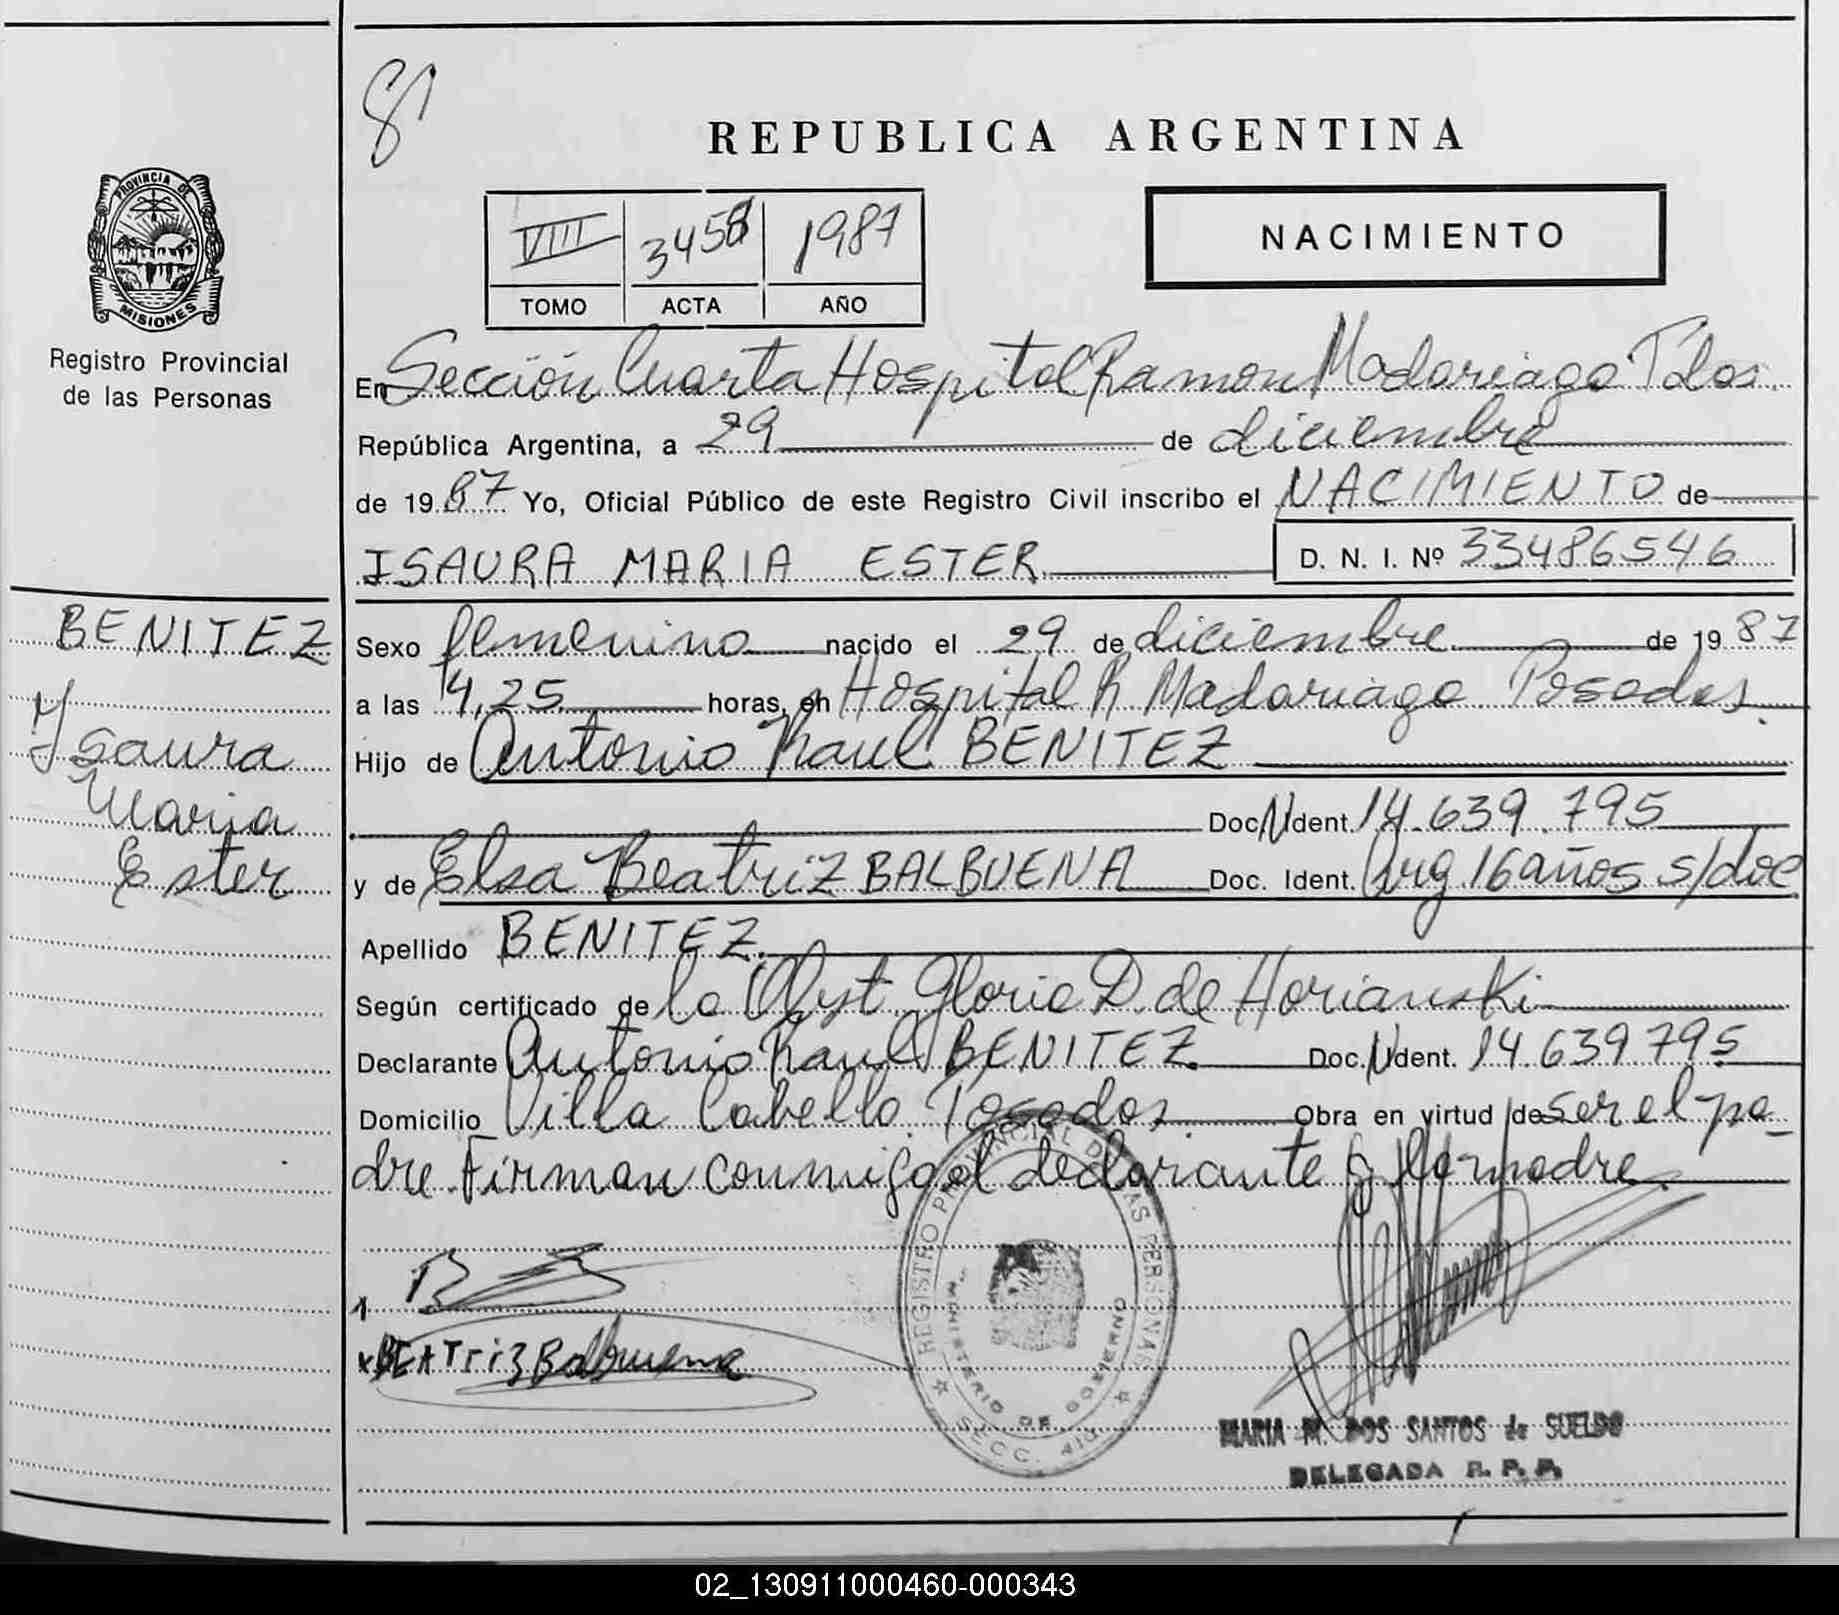 81
REPUBLICA ARGENTINA
PROVINCIA DE
MISIONES
Registro Provincial
de las Personas
VIII 3458 1987
TOMO ACTA AÑO
NACIMIENTO
En Sección Cuarta Hospital Ramon Madariaga Pdas.
República Argentina, a 29 de diciembre
de 1987 Yo, Oficial Público de este Registro Civil inscribo el NACIMIENTO de
ISAURA MARIA ESTER D. N. I. Nº 33486546
BENITEZ
Ysaura
Maria
Ester
Sexo femenino nacido el 29 de diciembre de 1987
a las 14,25 horas, en Hospital R Madariaga Posadas.
Hijo de Antonio Raul BENITEZ
Doc. N Ident. 14.639.795
y de Elsa Beatriz BALBUENA Doc. Ident. Arg 16 años s/doc
Apellido BENITEZ.
Según certificado de la Obst. Gloria D. de Horianski
Declarante Antonio Raul BENITEZ Doc. N Ident. 14 639 795
Domicilio Villa Cabello. Posadas. Obra en virtud de ser el pa_
dre. Firman conmigo el declarante y la madre
1
x BEATriz Balbuena
REGISTRO PROVINCIAL DE LAS PERSONAS
MINISTERIO DE GOBIERNO
SECC. 4ta
MARIA M. DOS SANTOS de SUELDO
DELEGADA R. P. P.
02_130911000460-000343